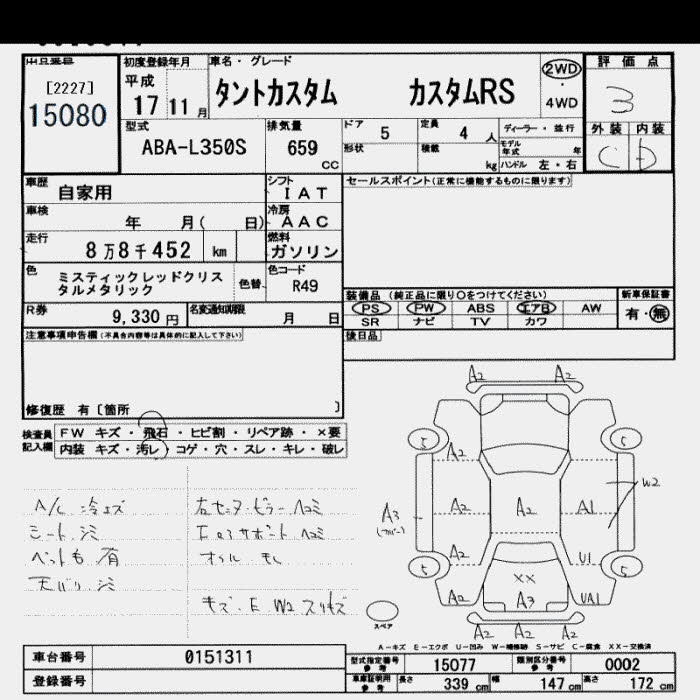 出品番号
[2227]
15080
初度登録年月
平成
17 11 月
車名・グレード
タントカスタム カスタムRS
2WD
・
4WD
評価点
3
外装 内装
C D
型式
ABA-L350S
排気量
659
CC
ドア 5
定員 4 人
ディーラー・並行
形状
積載 kg
モデル年式 年
ハンドル 左・右
車歴 自家用
シフト
IAT
セールスポイント(正常に機能するものに限ります)
車検 年 月( 日)
冷房
AAC
走行 8万8千452 km
燃料
ガソリン
色 ミスティックレッドクリス
タルメタリック
色替
色コード
R49
装備品 (純正品に限り○をつけてください)
新車保証書
PS PW ABS エアB AW
有・無
SR ナビ TV カワ
R券 9,330 円
名変通知期限 月 日
注意事項申告欄(不具合内容等は具体的に記入して下さい)
後日品
修復歴 有〔箇所 〕
検査員
記入欄
FW キズ・飛石・ヒビ割・リペア跡・×要
内装 キズ・汚レ・コゲ・穴・スレ・キレ・破レ
A/C 冷エズ
シート シミ
ペット毛 有
天バリ シミ
オイル モレ
キズ・E W2 スリキズ
A2 A2
5 5
A2
A3 A2 A2 A1 W2
A2 U1
5 5
XX
A2 A3 UA1
A2 A2 A2
スペア
A-キズ E-エクボ U-凹み W-補修跡 S-サビ C-腐食 XX-交換済
車台番号 0151311
登録番号
型式指定番号
参考
15077
類別区分番号
参考
0002
車庫証明用
参考
長さ 339 cm 幅 147 cm 高さ 172 cm